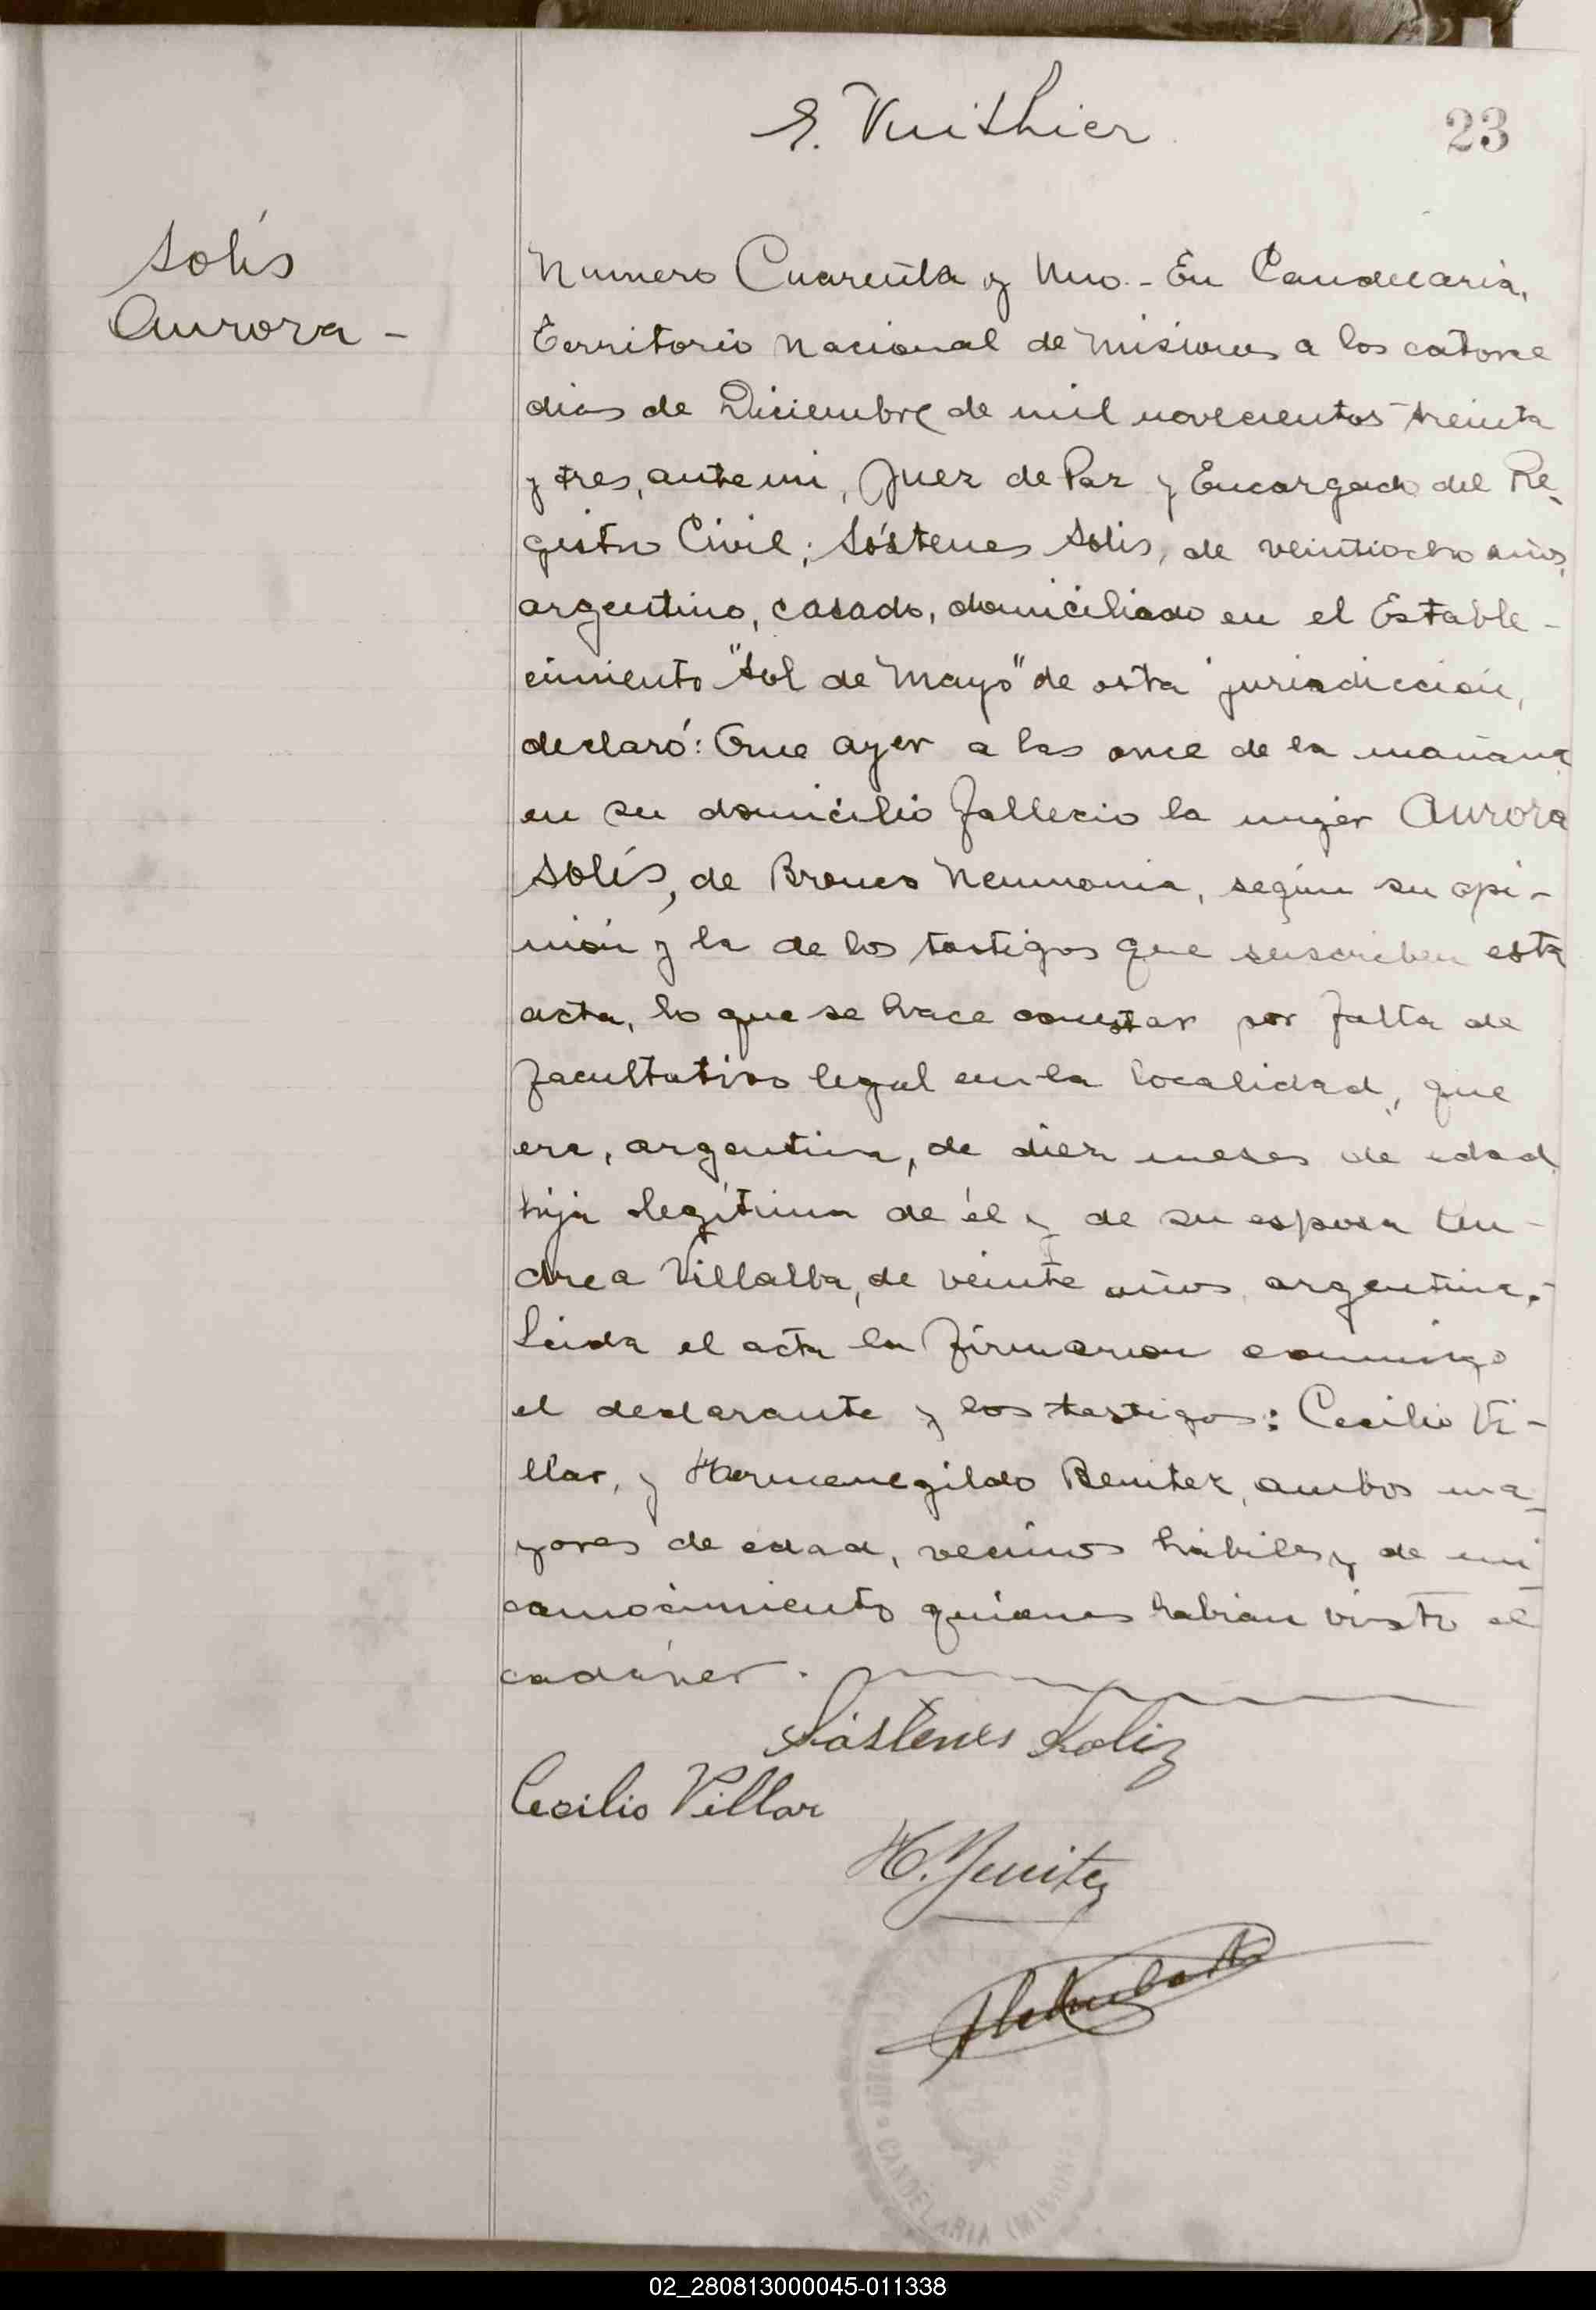 E. Vuithier
23
Solís
Aurora -
Numero Cuarenta y Uno.- En Candelaria,
Territorio Nacional de Misiones a los catorce
dias de Diciembre de mil novecientos treinta
y tres, ante mi, Juez de Paz y Encargado del Re-
gistro Civil; Sóstenes Solis, de veintiocho años,
argentino, casado, domiciliado en el Estable-
cimiento "Sol de Mayo" de esta jurisdicción,
declaró: Que ayer a las once de la mañana
en su domicilio fallecio la mujer Aurora
Solís, de Bronco Neumonia, según su opi-
nión y la de los testigos que suscriben esta
acta, lo que se hace constar por falta de
facultativo legal en la localidad, que
era, argentina, de diez meses de edad
hija legítima de él y de su esposa An-
drea Villalba, de veinte años, argentina.-
Leida el acta la firmaron conmigo
el declarante y los testigos: Cecilio Vi-
llar, y Hermenegildo Benitez, ambos ma-
yores de edad, vecinos hábiles y de mi
conocimiento quienes habian visto el
cadáver.
Sóstenes Soliz
Cecilio Villar
H. Benitez
CANDELARIA (MISIONES)
02_280813000045-011338